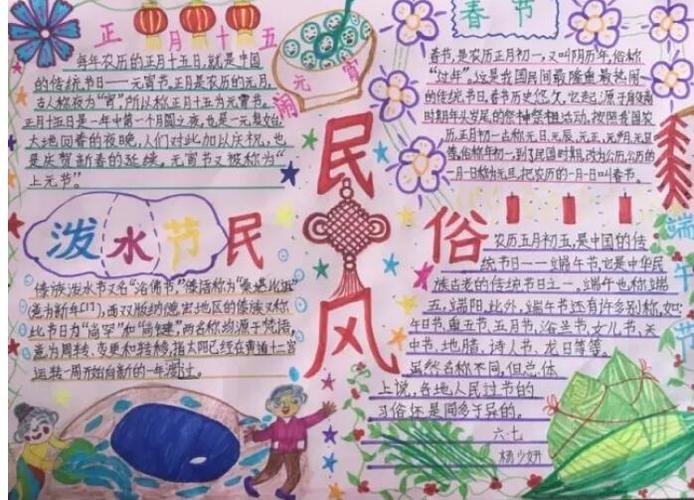 正月十五
每年农历的正月十五日,就是中国
的传统节日——元宵节。正月是农历的元月,
古人称夜为“宵”,所以称正月十五为元宵节。
正月十五日是一年中第一个月圆之夜,也是一元复始,
大地回春的夜晚,人们对此加以庆祝,也
是庆贺新春的延续。元宵节又被称为“
上元节”。
闹元宵
春节
春节,是农历正月初一,又叫阴历年,俗称
“过年”。这是我国民间最隆重、最热闹
的传统节日。春节历史悠久,它起源于
时期年头岁尾的祭神祭祖活动。按照我国农
历,正月初一古称元日、元辰、元正、元朔、元旦
等,俗称年初一,到了民国时期,改为公历,公历的
一月一日称为元旦,把农历的一月一日叫春节。
民
风
民
俗
泼水节
傣族泼水节又名“浴佛节”,傣语称为“
意为新年”,西双版纳德宏地区的傣族又称
此节日为“尚罕”和“尚键”,两名称均源于梵语,
意为周转、变更和转移,指太阳已经在黄道十二宫
运转一周开始向新的一年过
端午节
农历五月初五,是中国的传
统节日——端午节,它是中华民
族古老的传统节日之一。端午也称端
五,端阳。此外,端午节还有许多别称,如:
午日节、重五节、五月节、浴兰节、女儿节、天
中节、地腊、诗人节、龙日等等。
虽然名称不同,但总体
上说,各地人民过节的
习俗还是同多于异的。
六·七
杨少妍